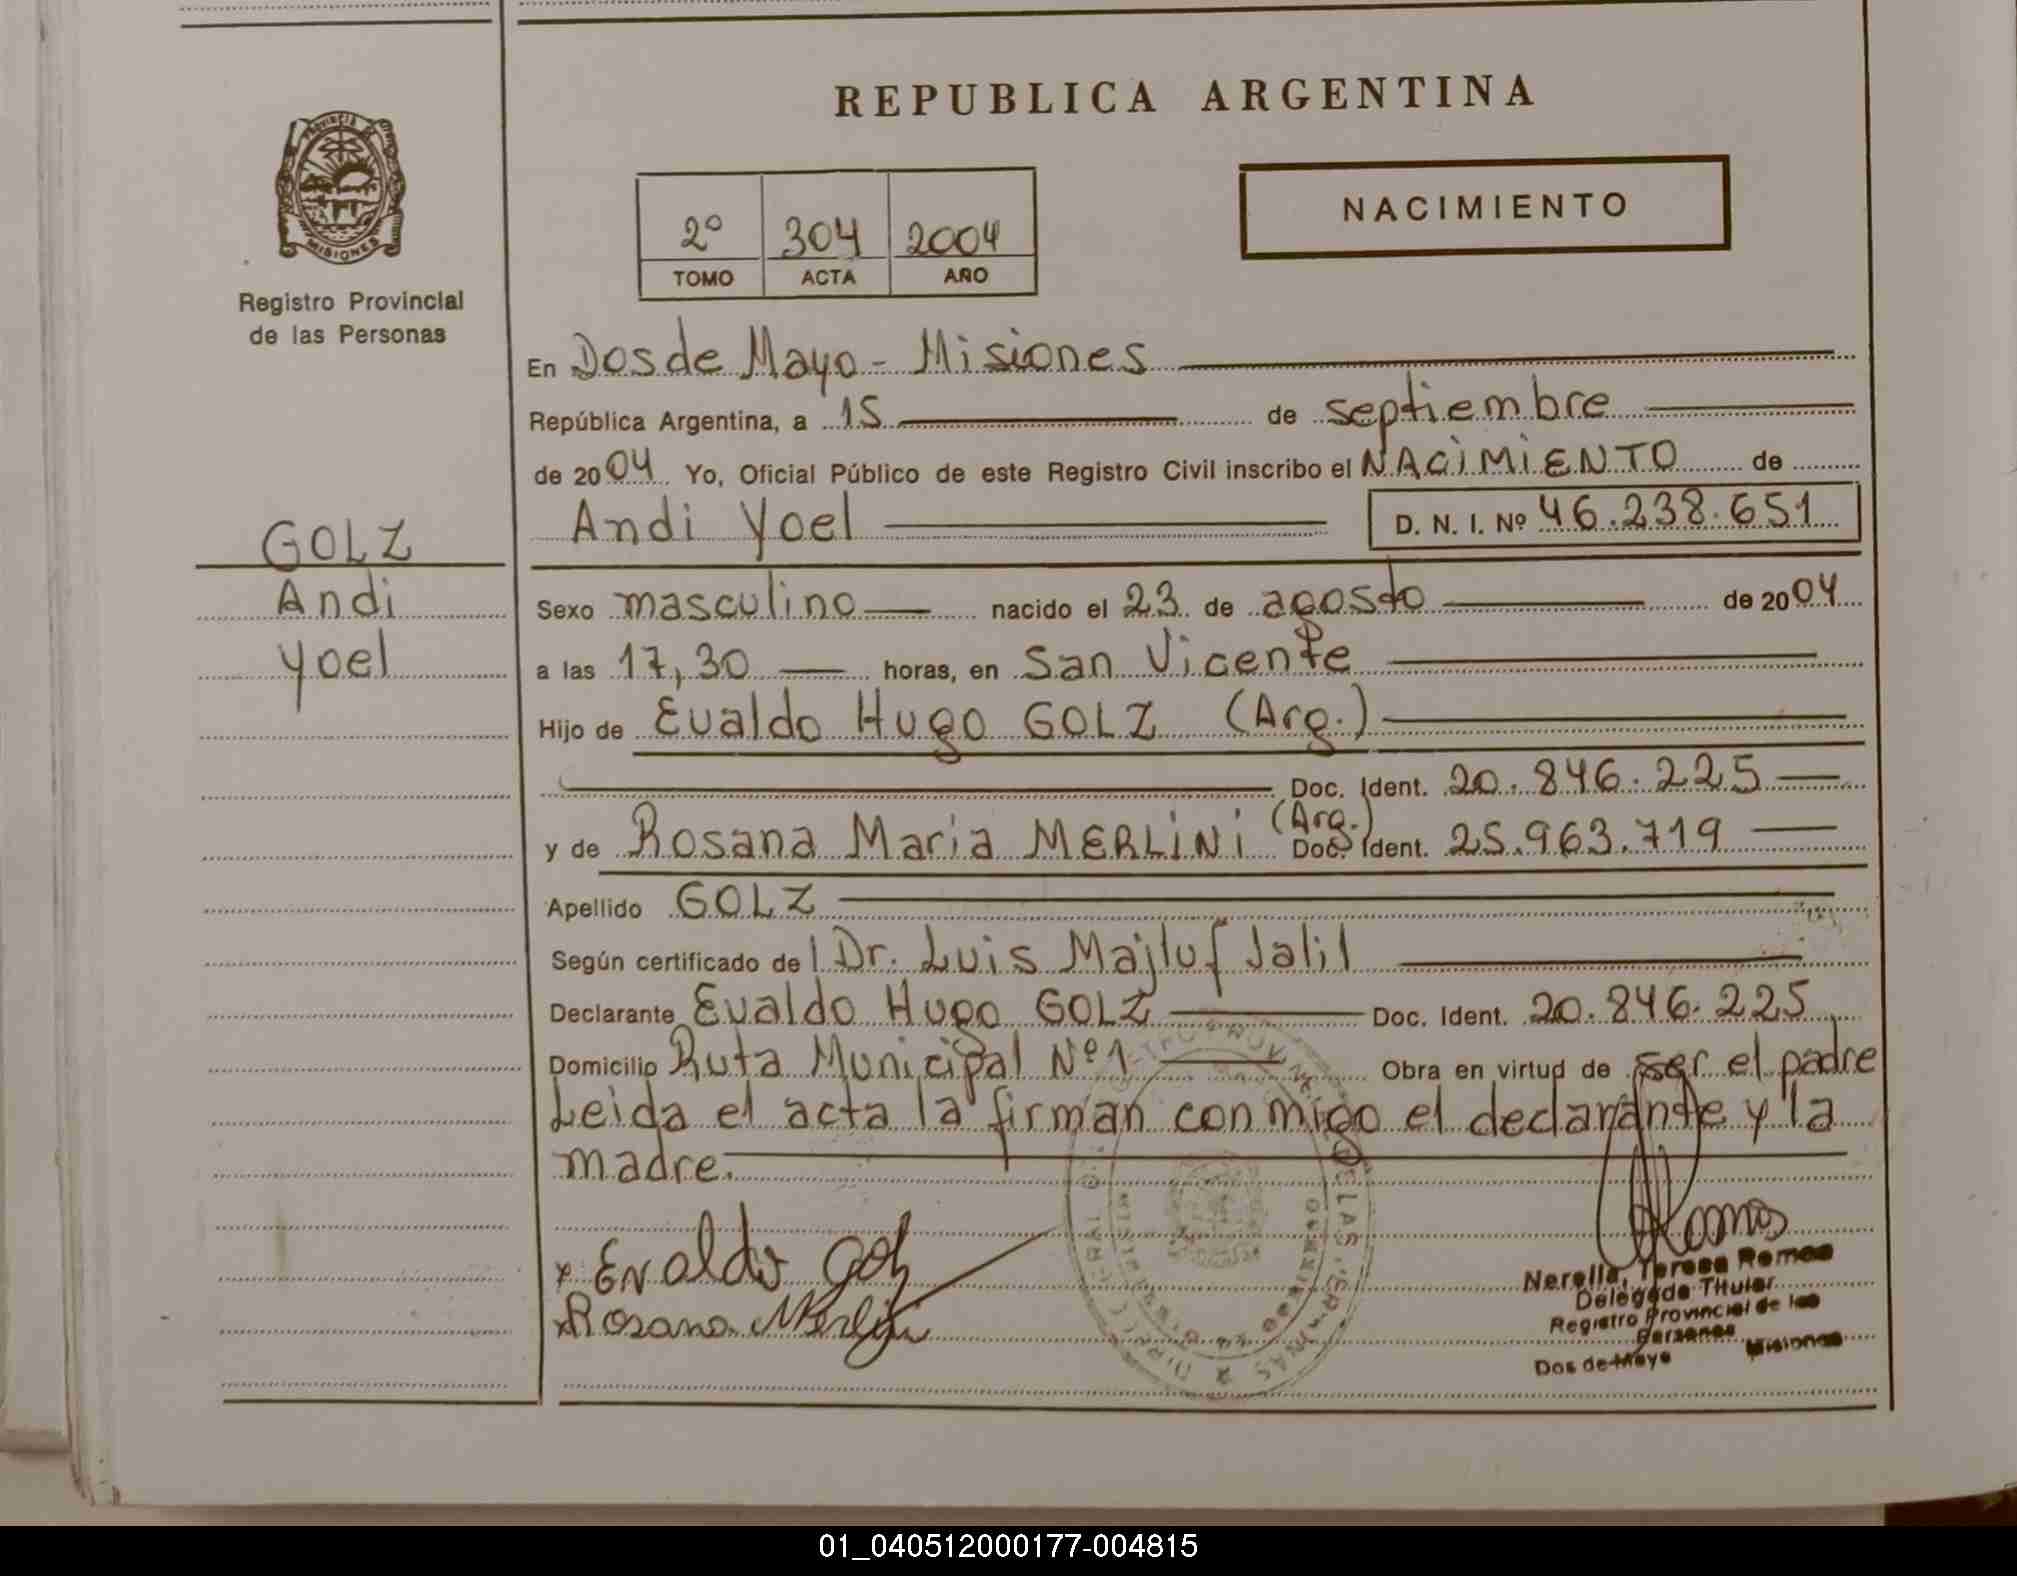 REPUBLICA ARGENTINA
PROVINCIA DE
MISIONES
Registro Provincial
de las Personas
2º 304 2004
TOMO ACTA AÑO
NACIMIENTO
En Dos de Mayo - Misiones
República Argentina, a 15 de septiembre
de 2004 Yo, Oficial Público de este Registro Civil inscribo el NACIMIENTO de
Andi Yoel D. N. I. Nº 46.238.651
GOLZ
Andi
Yoel
Sexo masculino nacido el 23 de agosto de 2004
a las 17,30 horas, en San Vicente
Hijo de Evaldo Hugo GOLZ (Arg.)
Doc. Ident. 20.846.225
y de Rosana Maria MERLINI (Arg.) Doc. Ident. 25.963.719
Apellido GOLZ
Según certificado del Dr. Luis Majluf Jalil
Declarante Evaldo Hugo GOLZ Doc. Ident. 20.846.225
Domicilio Ruta Municipal Nº 1 Obra en virtud de ser el padre
Leida el acta la firman conmigo el declarante y la
madre.
x Evaldo Golz
x Rosana Merlini
Ramos
Nerella, Teresa Ramos
Delegada Titular
Registro Provincial de las
Personas
Dos de Mayo Misiones
01_040512000177-004815